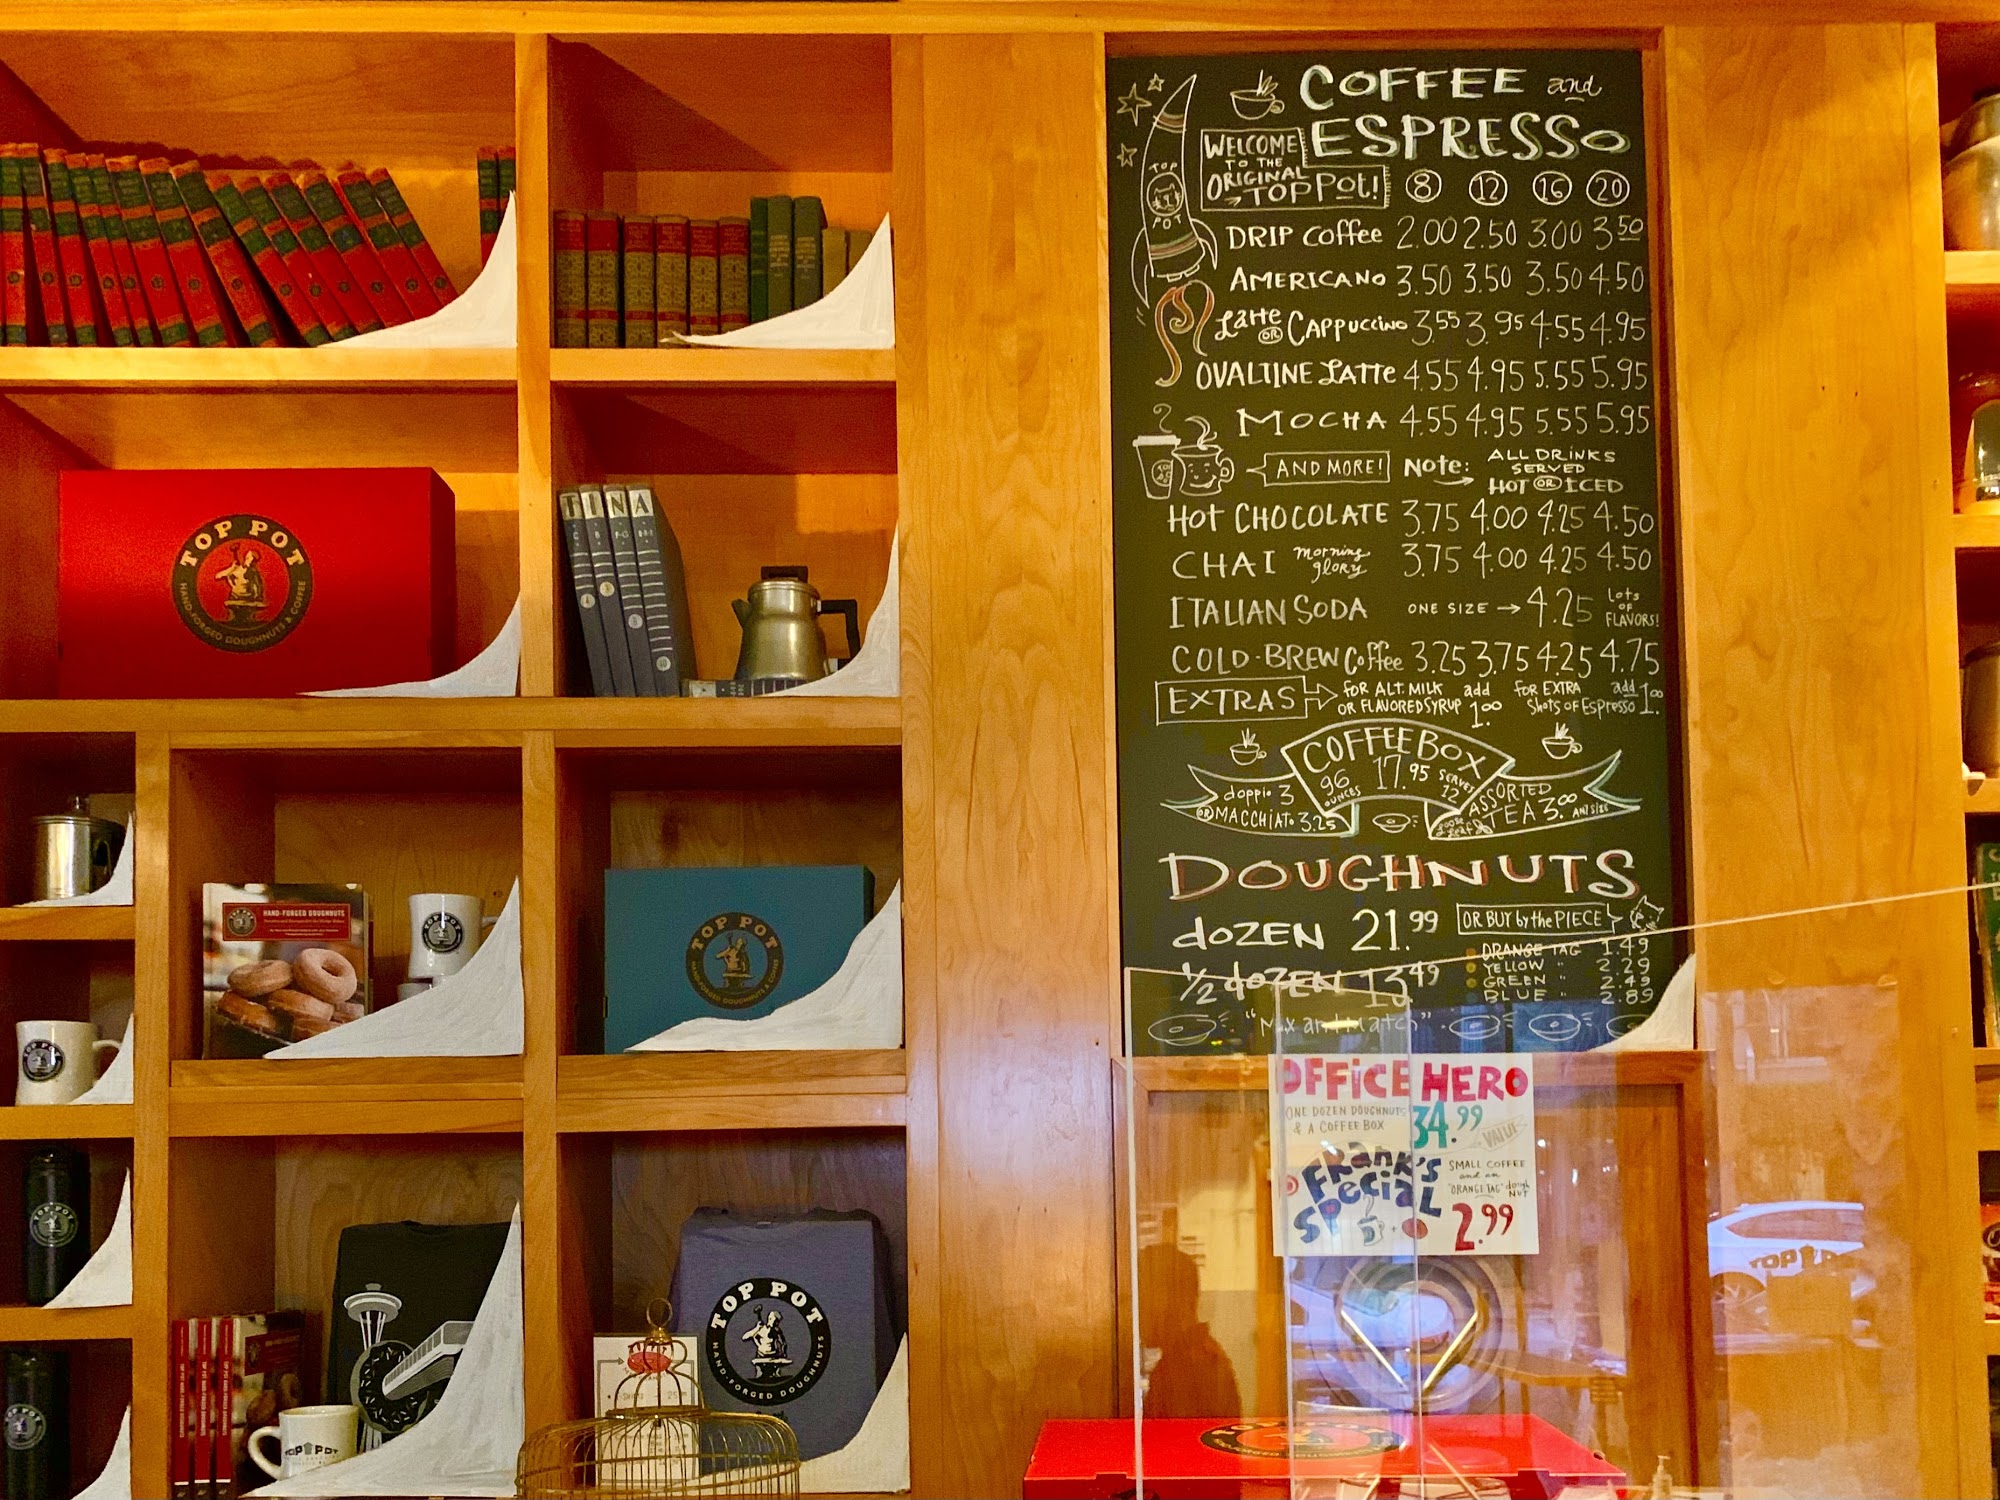 COFFEE and
ESPRESSO
WELCOME
TO THE
ORIGINAL
TOP POT!
TOP
POT
8 12 16 20
DRIP Coffee 2.00 2.50 3.00 3.50
AMERICANO 3.50 3.50 3.50 4.50
Latte OR CAPPUCCINO 3.55 3.95 4.55 4.95
OVALTINE LATTE 4.55 4.95 5.55 5.95
MOCHA 4.55 4.95 5.55 5.95
AND MORE! Note: ALL DRINKS
SERVED
HOT OR ICED
HOT CHOCOLATE 3.75 4.00 4.25 4.50
CHAI morning glory 3.75 4.00 4.25 4.50
ITALIAN SODA ONE SIZE → 4.25 lots OF FLAVORS!
COLD-BREW Coffee 3.25 3.75 4.25 4.75
EXTRAS FOR ALT. MILK add FOR EXTRA add
OR FLAVORED SYRUP 1.00 Shots of Espresso 1.00
COFFEE BOX
96 OUNCES 17.95 SERVES 12
doppio 3
OR MACCHIATO 3.25
ASSORTED
loose leaf TEA 3.00 ANY SIZE
DOUGHNUTS
dOZEN 21.99 OR BUY by the PIECE
1/2 dOZEN 13.49
ORANGE TAG 1.49
YELLOW " 2.29
GREEN " 2.49
BLUE " 2.89
"Mix and Match"
OFFICE HERO
ONE DOZEN DOUGHNUTS
& A COFFEE BOX
34.99
VALUE
FRANK'S
SPECIAL
SMALL COFFEE
and an
"ORANGE TAG" doughNUT
2.99
TOP POT
HAND-FORGED DOUGHNUTS & COFFEE
TINA
HAND-FORGED DOUGHNUTS
TOP POT
TOP POT
HAND-FORGED DOUGHNUTS & COFFEE
TOP POT
TOP POT
TOP POT
TOP POT
TOP POT
HAND-FORGED DOUGHNUTS
TOP POT
TOP POT